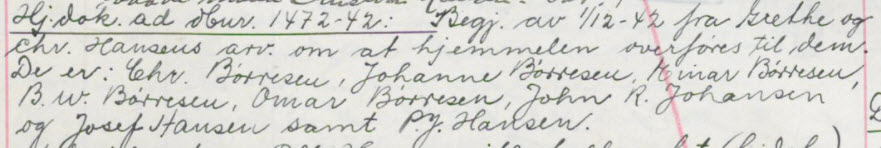 Hj.dok. ad dbur. 1472-42: Begj. av 1/12-42 fra Grethe og
Chr. Hansens arv. om at hjemmelen overføres til dem.
De er: Chr. Børresen, Johanne Børresen, Einar Børresen,
B.W. Børresen, Omar Børresen, John R. Johansen
og Josef Hansen samt P.J. Hansen.